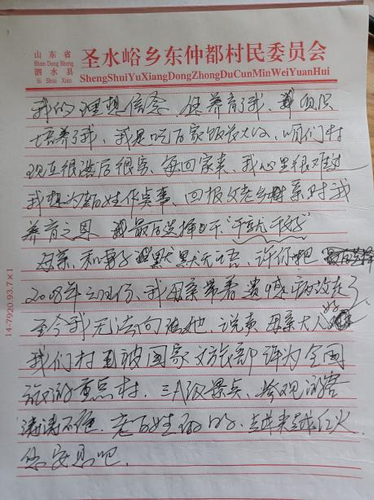 山东省
Shan Dong Sheng
泗水县
Si Shui Xian
圣水峪乡东仲都村民委员会
ShengShuiYuXiangDongZhongDuCunMinWeiYuanHui
我的理想信念、 养育了我、 
培养了我、我是吃百家饭长大的、咱们村
现在很落后很穷、每回家来、我心里很难过
我想为百姓作点事、回报父老乡亲对我
养育之恩、 最后选择 "干就干好"
母亲、和妻子 默默无语、许你吧
2008年 月份、我母亲带着遗憾病故走了
至今我无法向 她、说声母亲大人
我们村 被国家文旅部评为全国
旅游重点村、三A级景点、参观游客
涛涛不绝、老百姓 的、越来越红火
您安息吧.
14-7920.93.7×1